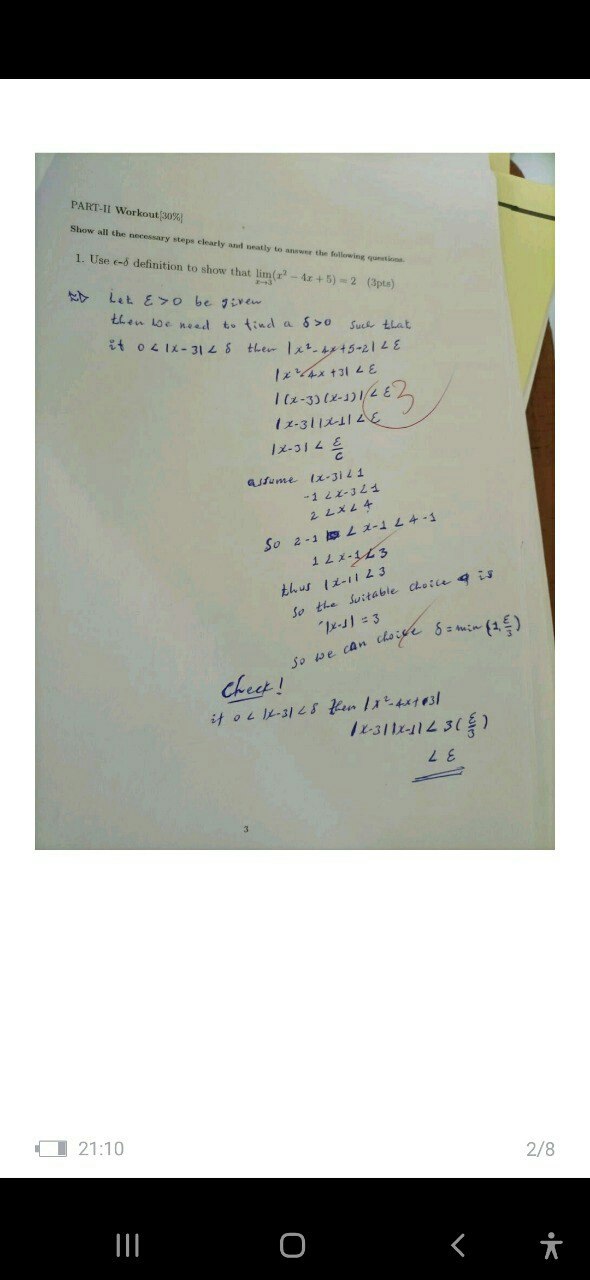 PART-II Workout[30%]
Show all the necessary steps clearly and neatly to answer the following questions.
1. Use ϵ-δ definition to show that lim x→3 (x² − 4x + 5) = 2 (3pts)
Let ε > 0 be given
then we need to find a δ>0 such that
if 0 < |x-3| < δ then |x²-4x+5-2| < ε
|x²-4x+3| < ε
|(x-3)(x-1)| < ε
3
|x-3||x-1| < ε
|x-3| < ε/c
assume |x-3| < 1
-1 < x-3 < 1
2 < x < 4
So 2-1 < x-1 < 4-1
1 < x-1 < 3
thus |x-1| < 3
So the suitable choice is
|x-1| = 3
So we can choice δ = min {1, ε/3}
Check!
if 0 < |x-3| < δ then |x²-4x+3|
|x-3||x-1| < 3(ε/3)
< ε
3
21:10
2/8